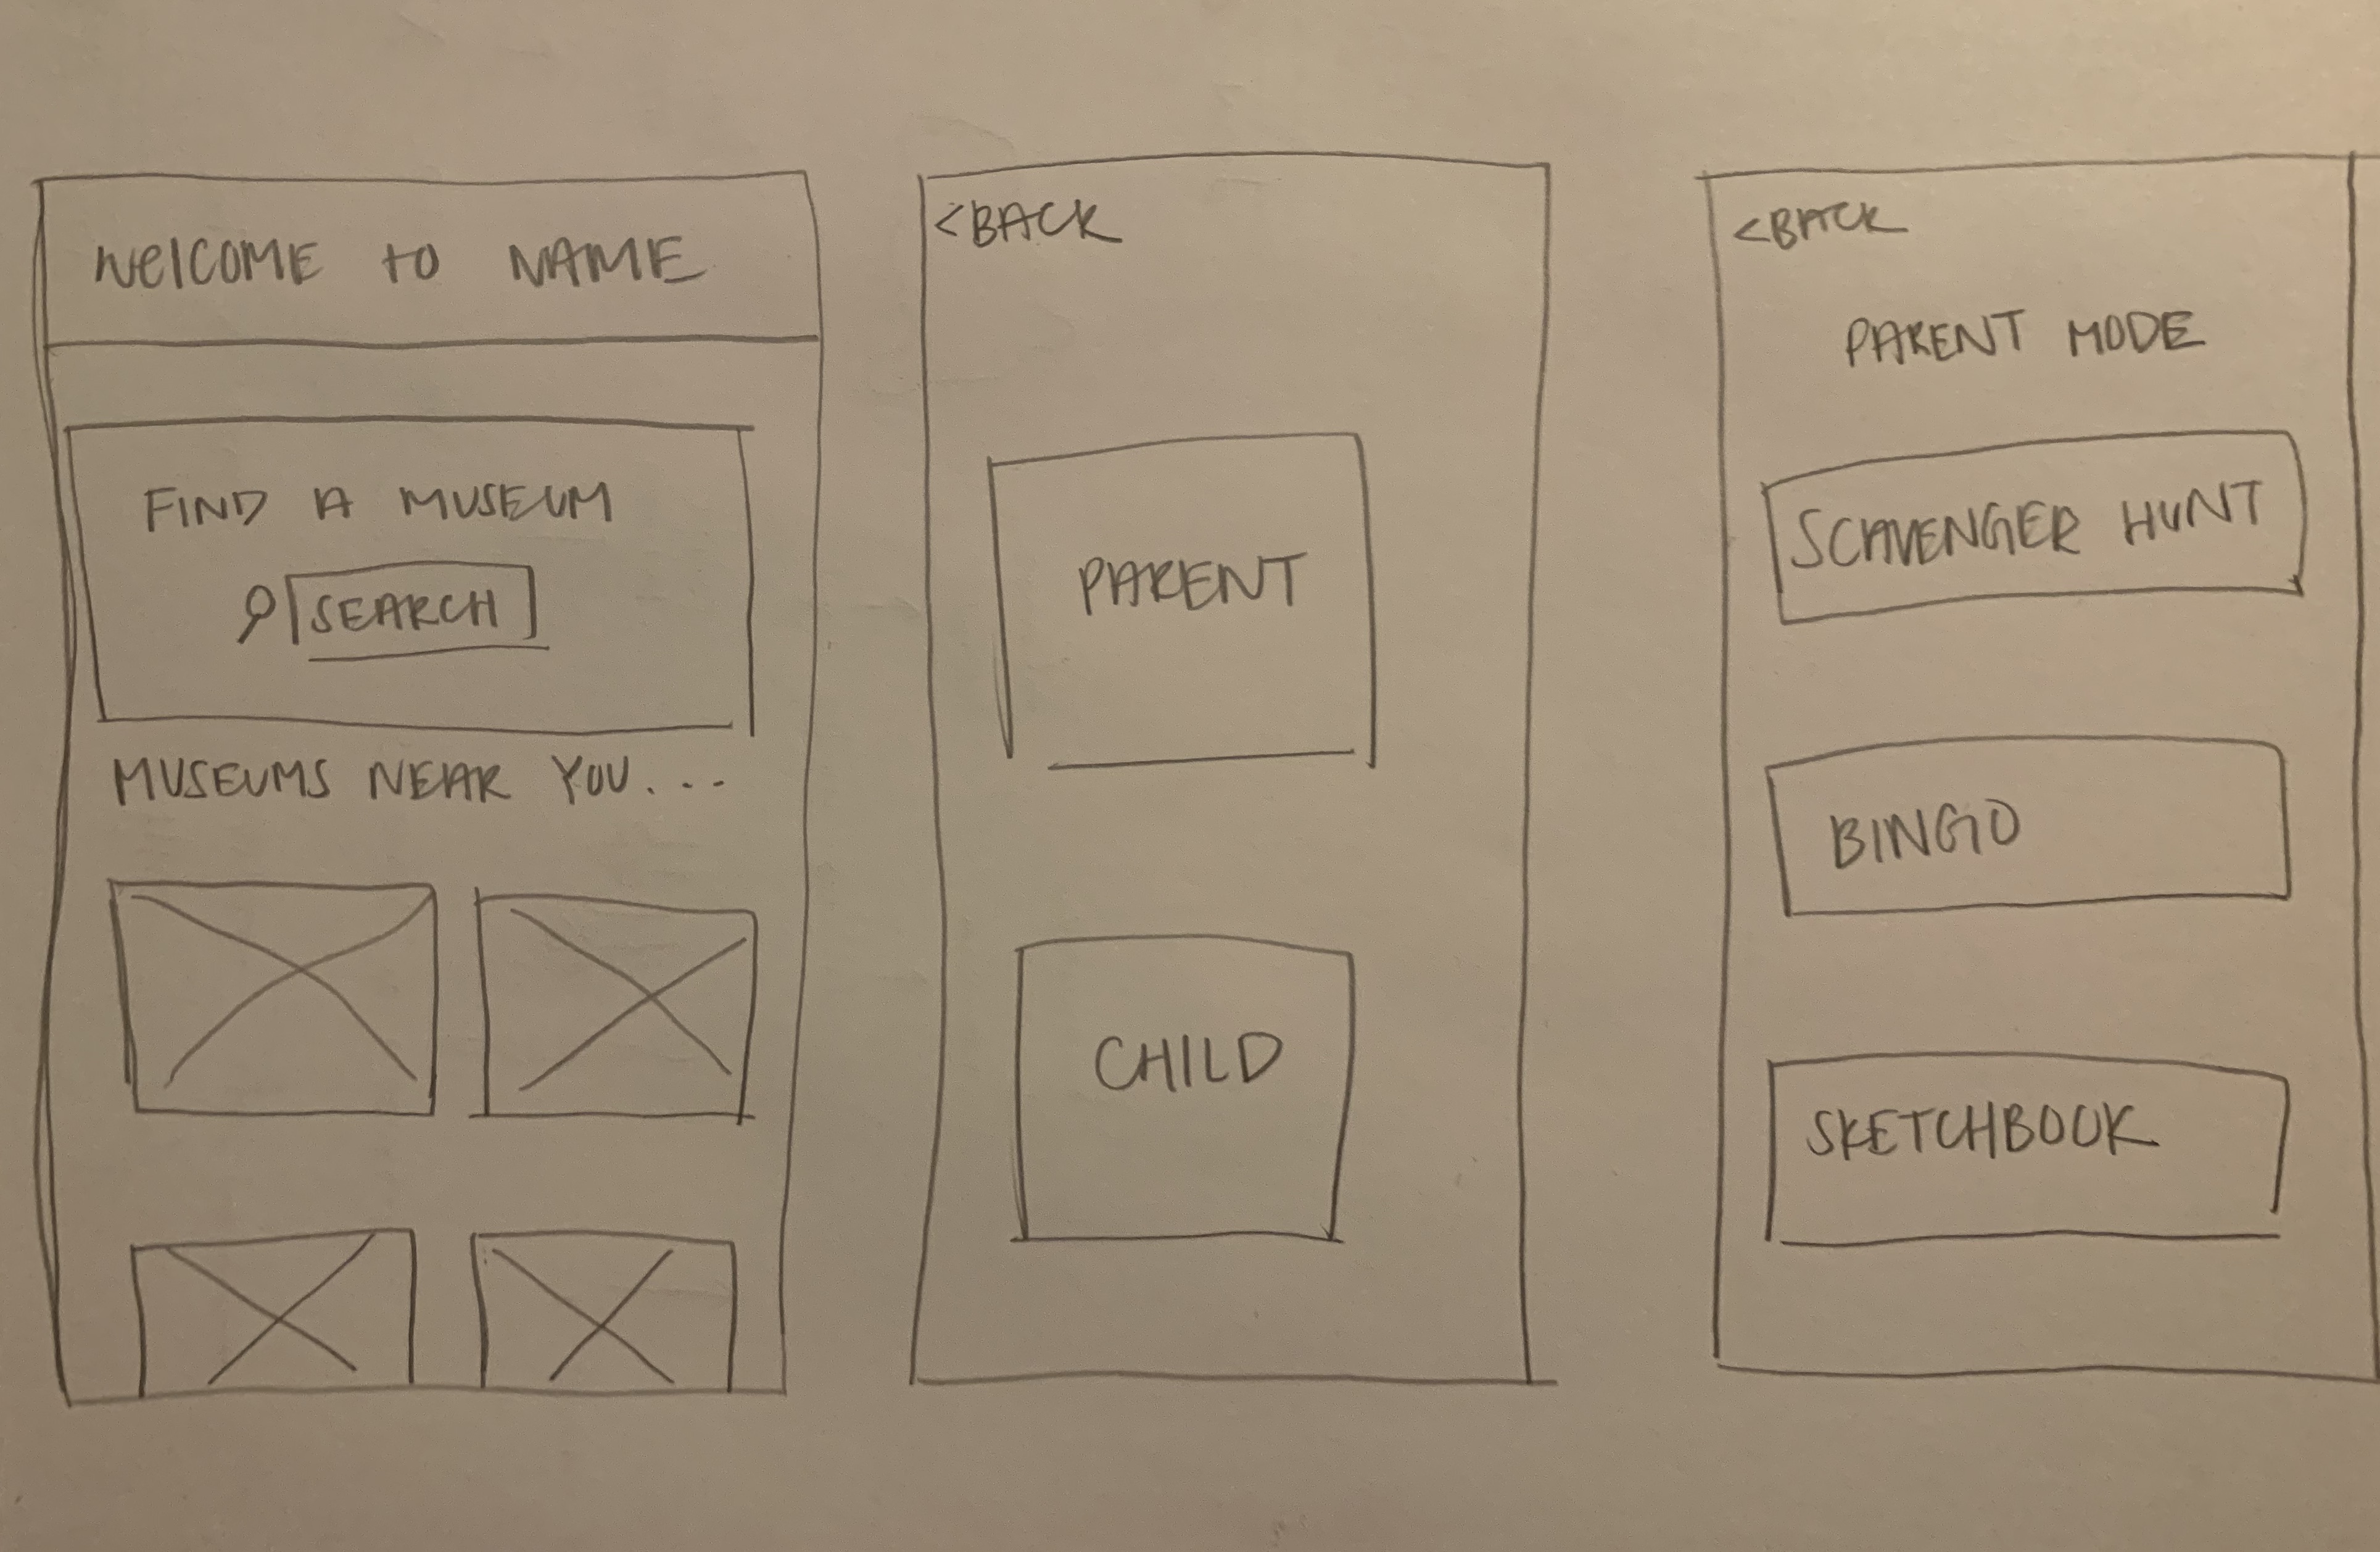 WelCOME to NAME
FIND A MUSEUM
SEARCH
MUSEUMS NEAR YOU...
<BACK
PARENT
CHILD
<BACK
PARENT MODE
SCAVENGER HUNT
BINGO
SKETCHBOOK